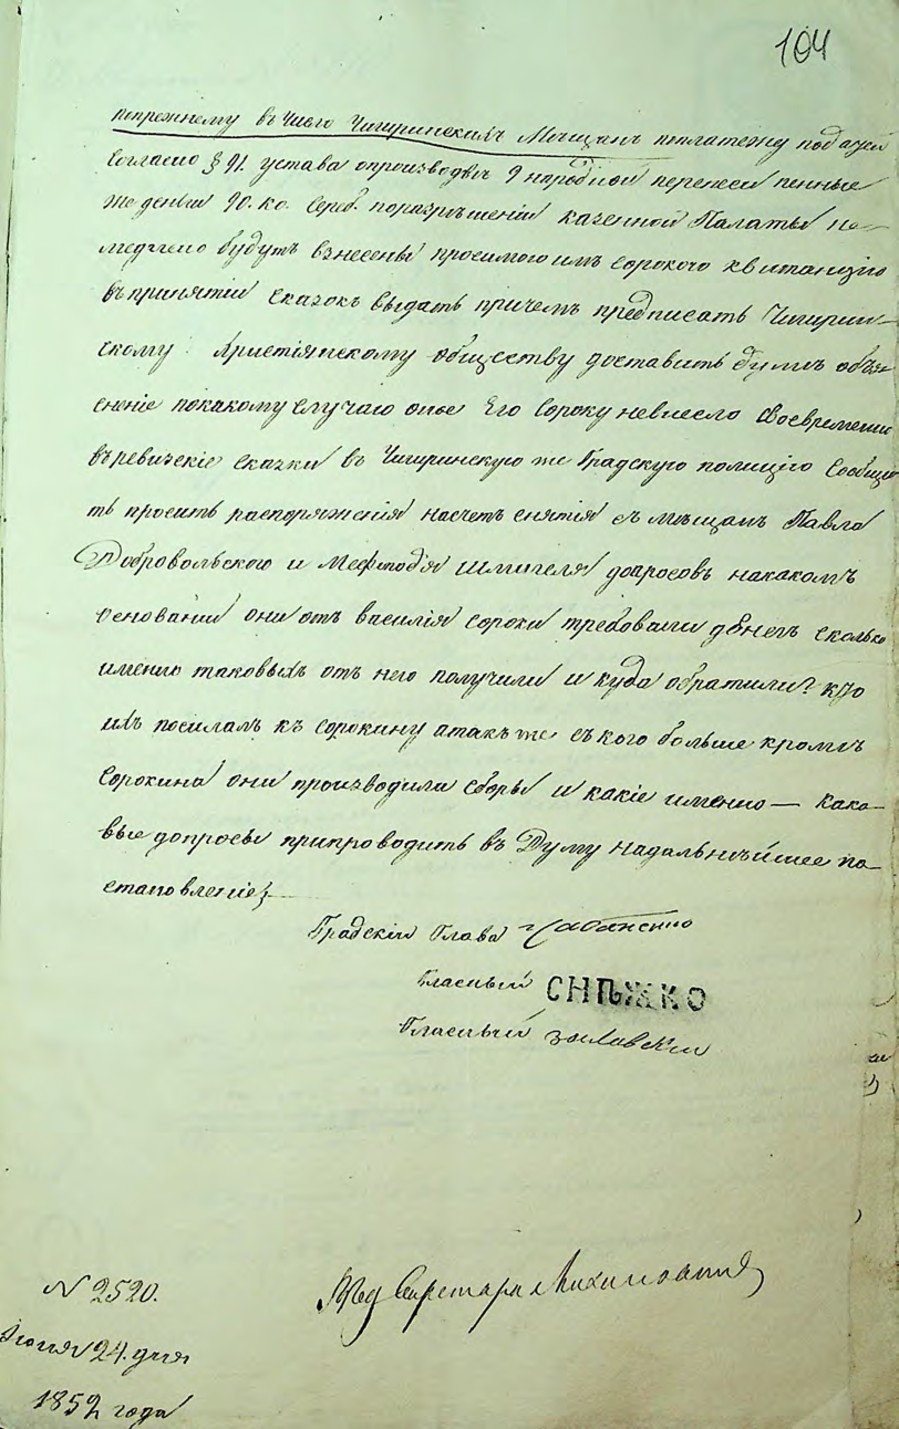 104
попрежнему въ число Чигиринскихъ Мещанъ поплатежу податей
согласно § 91. устава опроизводве 9 народной перепеси пенные
же деньги 90. ко. Сереб. поразрешенiи казенной Палаты не-
медлено будутъ взнесены просимою имъ Сорокою квитанцiю
въ принятiи Сказокъ выдать причемъ предписать Чигирин-
скому Христiянскому обществу доставить думе объя-
снение покакому случаю оное Его Сороку невнесло своевременно
въ ревизскiе сказки въ Чигиринскую же Градскую полицiю Сообщи-
ть просить распоряженiя насчетъ снятiя съ мещанъ Павла
Добровольского и Мефтодiя Шмигеля допросовъ накакомъ
основанiи они отъ василiя сороки требовали денегъ сколько
именно таковыхъ отъ него получили и куда обратили? кто
ихъ посилалъ къ сорокину атакъже съ кого больше кроме
Сорокина они производили сборы и какiе именно — како-
вые допросы припроводить въ Думу надальнейшее по-
становленiе
Градскiй Глава
Гласный СНѢЖКО
Гласный Заславскiй
Секретарь
N 2520.
24. дня
1852 года